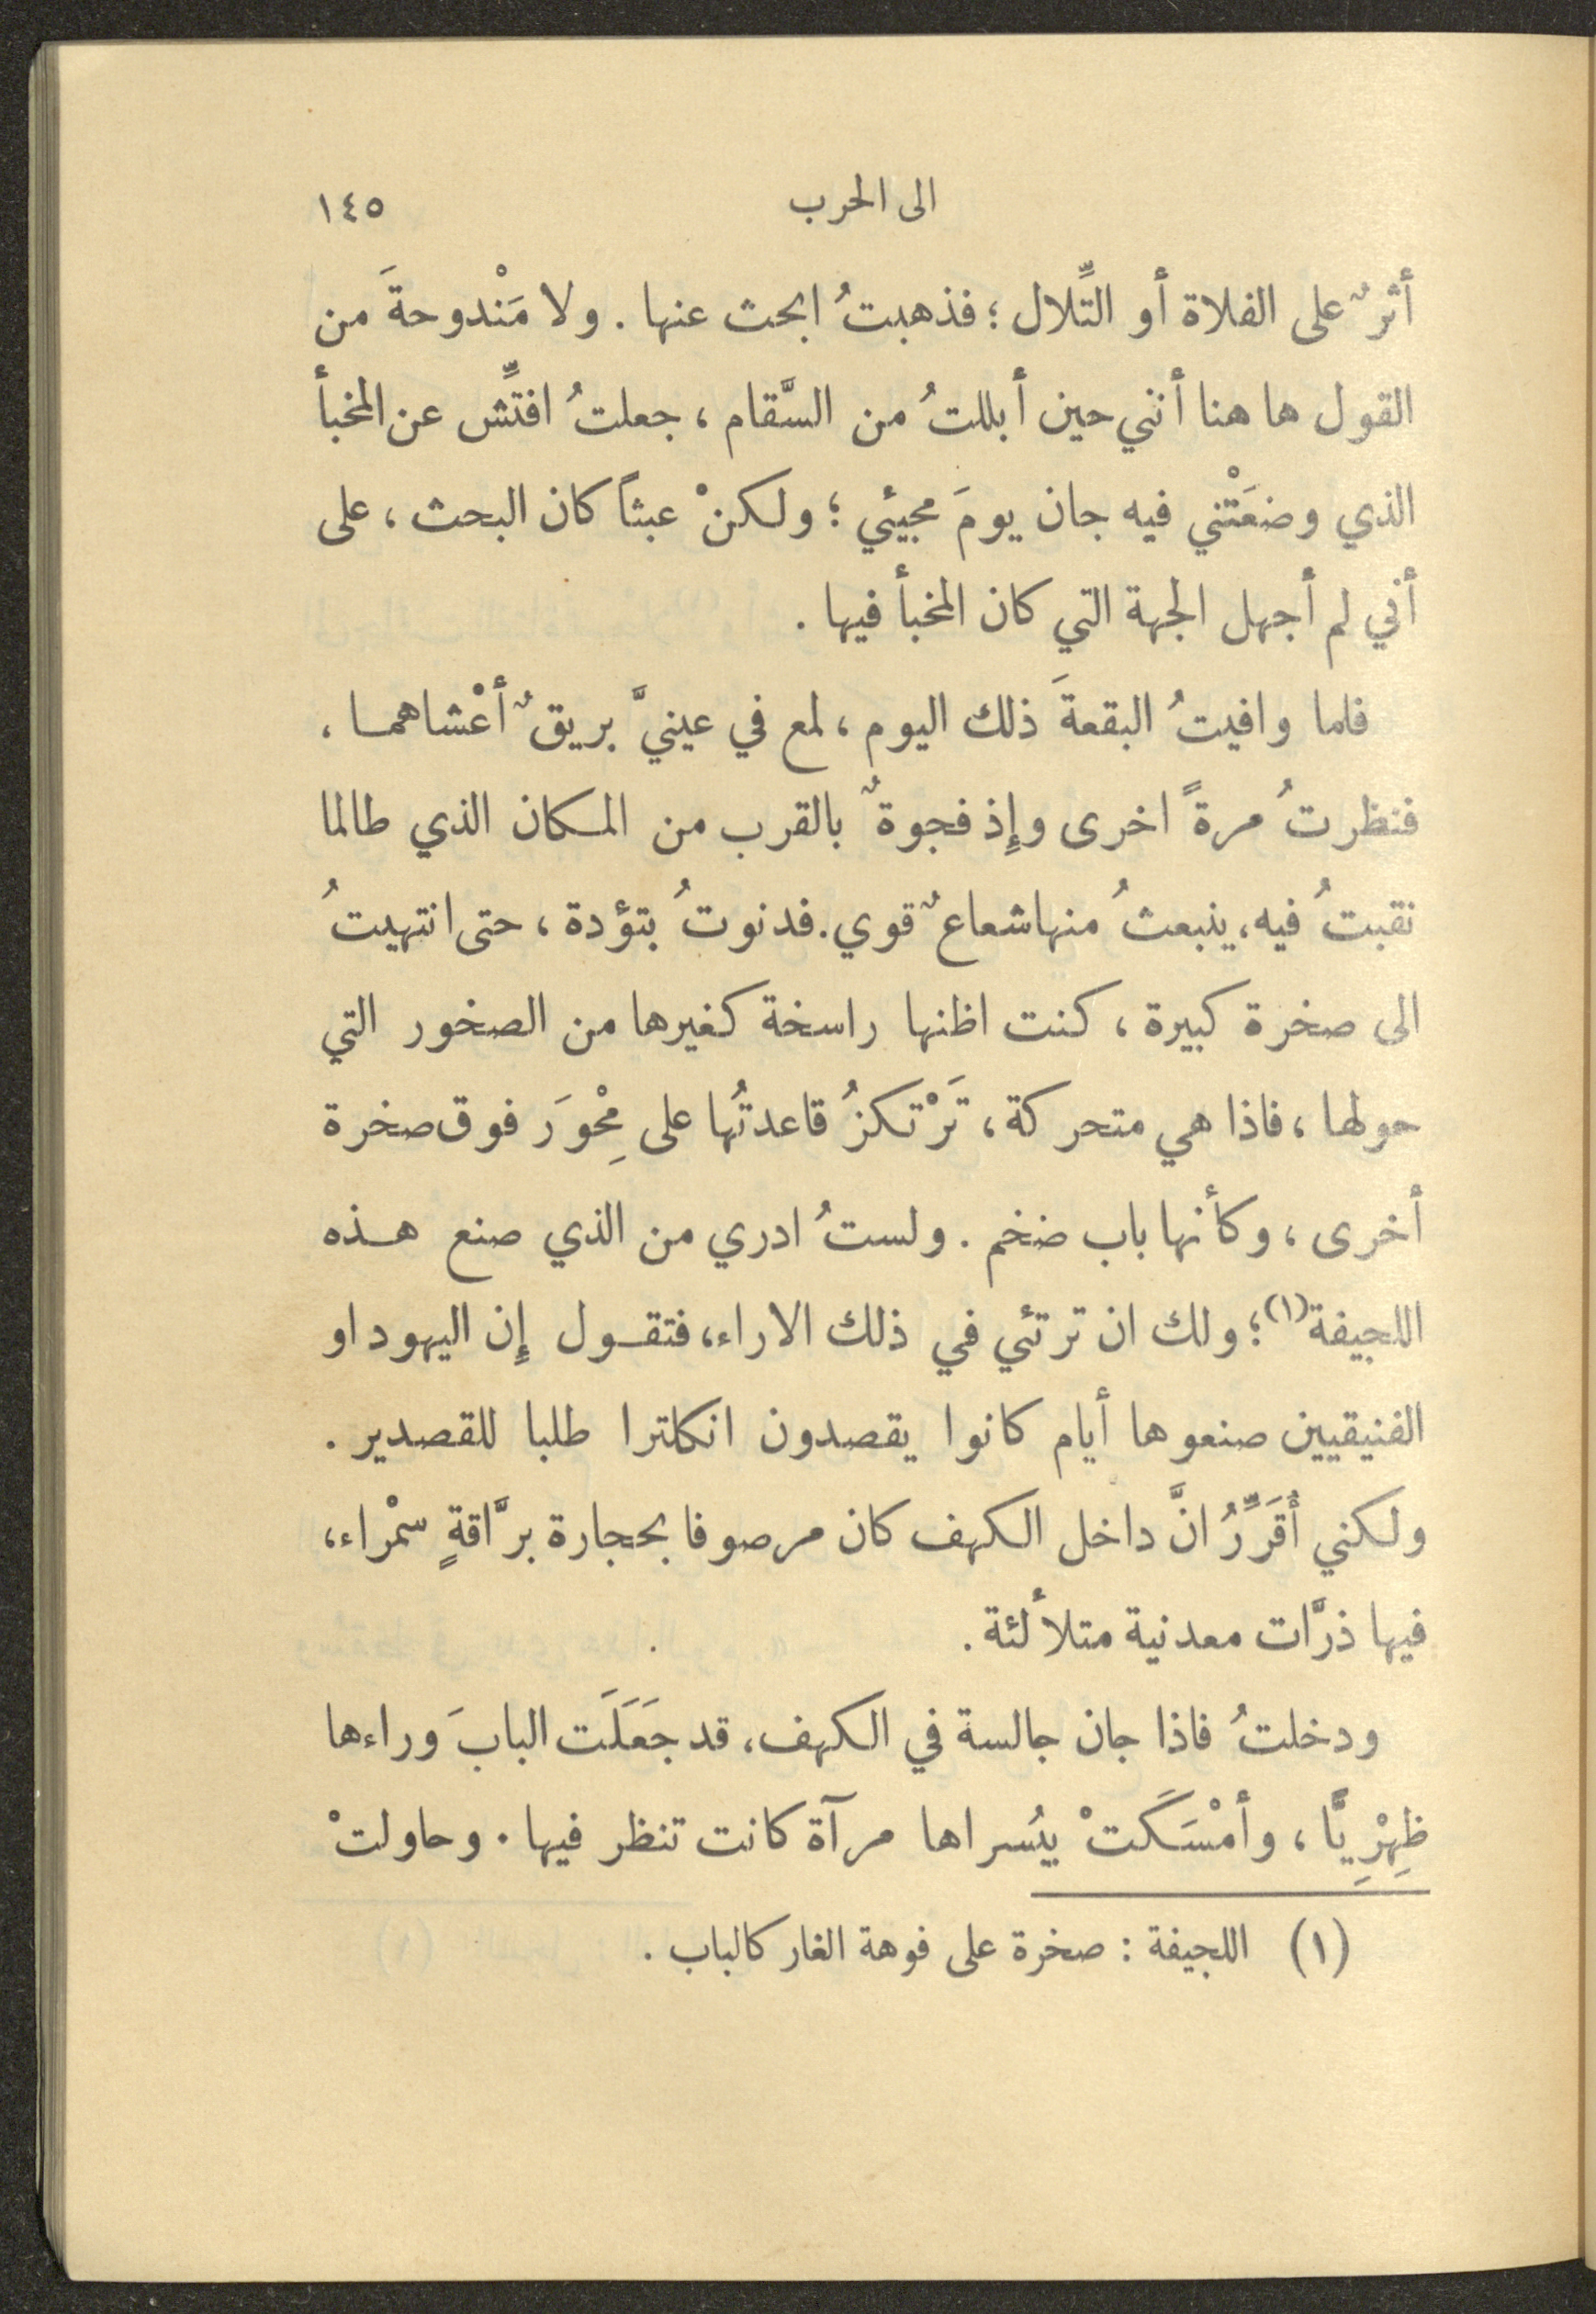 الى الحرب ١٤٥
أثرٌ على الفلاة أو التِّلال ؛ فذهبتُ ابحث عنها . ولا مَنْدوحةَ من
القول ها هنا أنني حين أبللتُ من السَّقام ، جعلتُ افتِّش عن المخبأ
الذي وضعَتْني فيه جان يومَ مجيئي ؛ ولكنْ عبثاً كان البحث ، على
أني لم أجهل الجهة التي كان المخبأ فيها .
فلما وافيتُ البقعةَ ذلك اليوم ، لمع في عينيَّ بريقٌ أعْشاهمـا ،
فنظرتُ مرةً اخرى وإِذ فجوةٌ بالقرب من المكان الذي طالما
نقبتُ فيه ، ينبعثُ منها شعاعٌ قوي . فدنوتُ بتؤدة ، حتى انتهيتُ
الى صخرة كبيرة ، كنت اظنها راسخة كغيرها من الصخور التي
حولها ، فاذا هي متحركة ، تَرْتكزُ قاعدتُها على مِحْوَر فوق صخرة
أخرى ، وكأنها باب ضخم . ولستُ ادري من الذي صنع هـذه
اللجيفة (١) ؛ ولك ان ترتئي في ذلك الاراء ، فتقـول إِن اليهود او
الفنيقيين صنعوها أيام كانوا يقصدون انكلترا طلبا للقصدير .
ولكني أُقَرِّرُ انَّ داخل الكهف كان مرصوفا بحجارة برَّاقةٍ سمْراء ،
فيها ذرَّات معدنية متلألئة .
ودخلتُ فاذا جان جالسة في الكهف ، قد جَعَلَت البابَ وراءها
ظِهْرِيًّا ، وأمْسَكَتْ بيُسراها مرآة كانت تنظر فيها . وحاولتْ
(١) اللجيفة : صخرة على فوهة الغار كالباب .